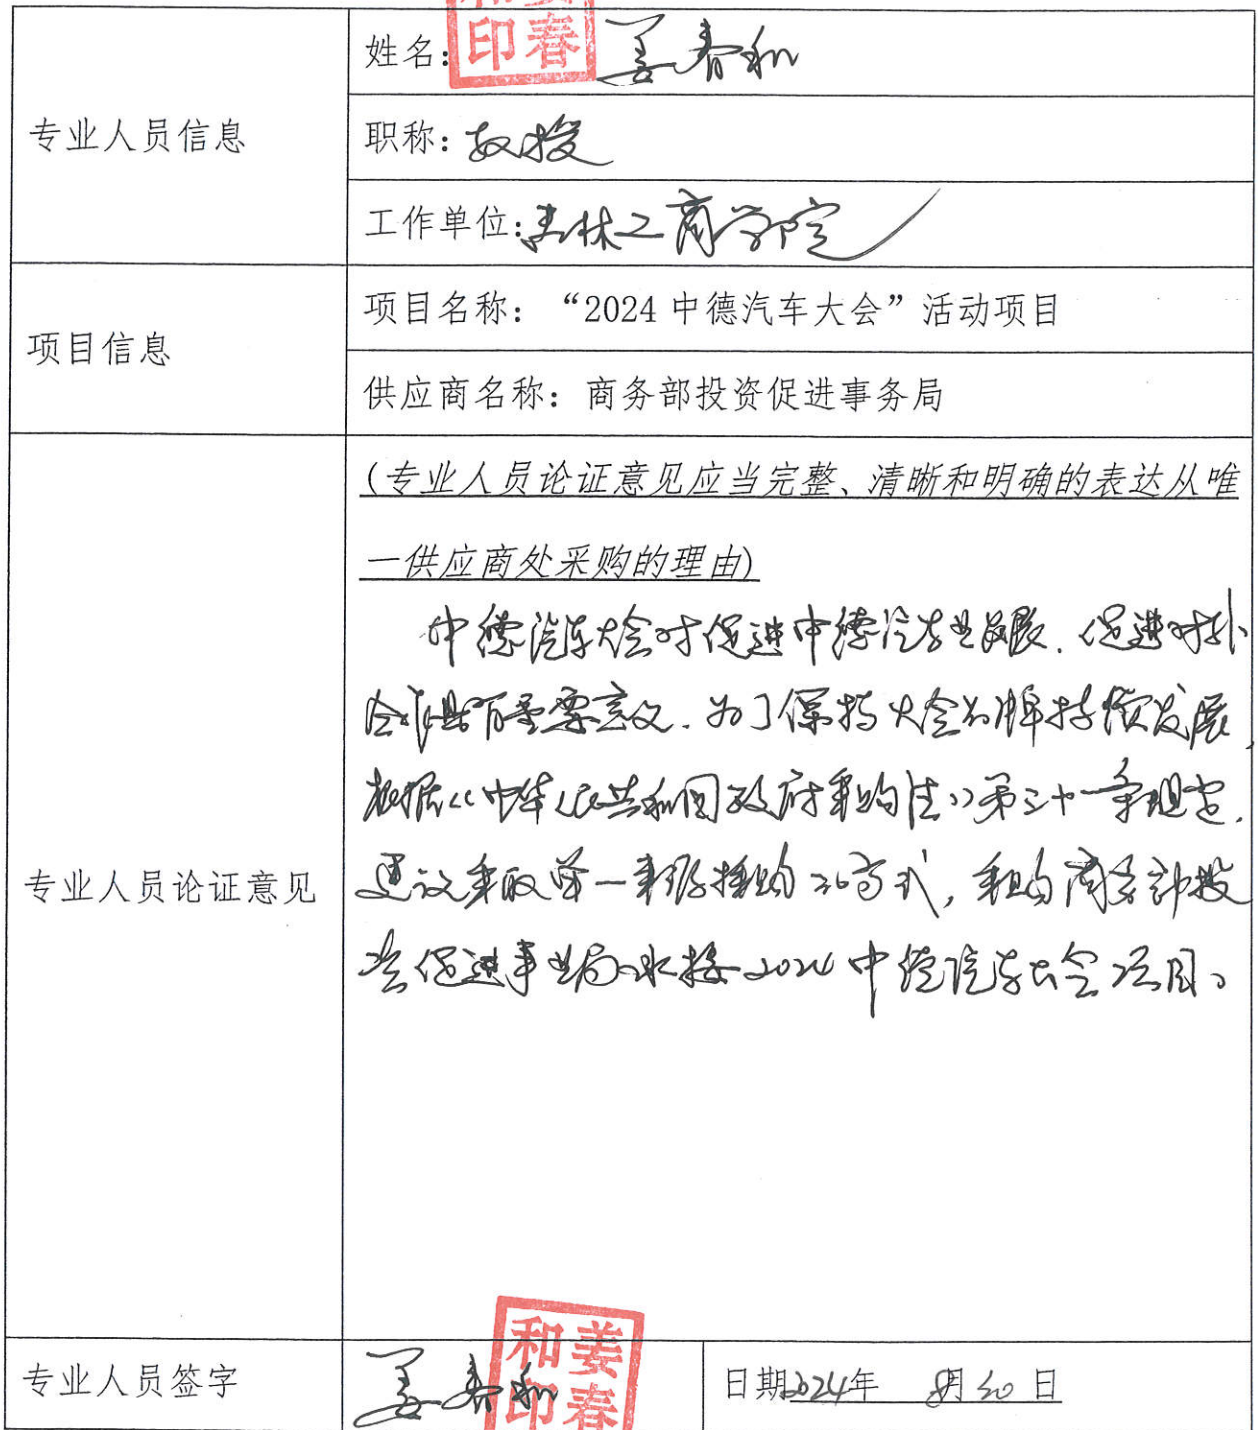 专业人员信息
姓名：姜春和
印春
职称：教授
工作单位：吉林工商学院
项目信息
项目名称：“2024 中德汽车大会”活动项目
供应商名称：商务部投资促进事务局
专业人员论证意见
(专业人员论证意见应当完整、清晰和明确的表达从唯
一供应商处采购的理由)
中德汽车大会对促进中德汽车业发展．促进对外
合作具有重要意义．为了保持大会品牌持续发展，
根据《中华人民共和国政府采购法》第三十一条规定，
建议采取单一来源采购的方式，采购商务部投
资促进事业局承接2024中德汽车大会项目。
专业人员签字
姜春和
和姜
印春
日期2024年 8月20日